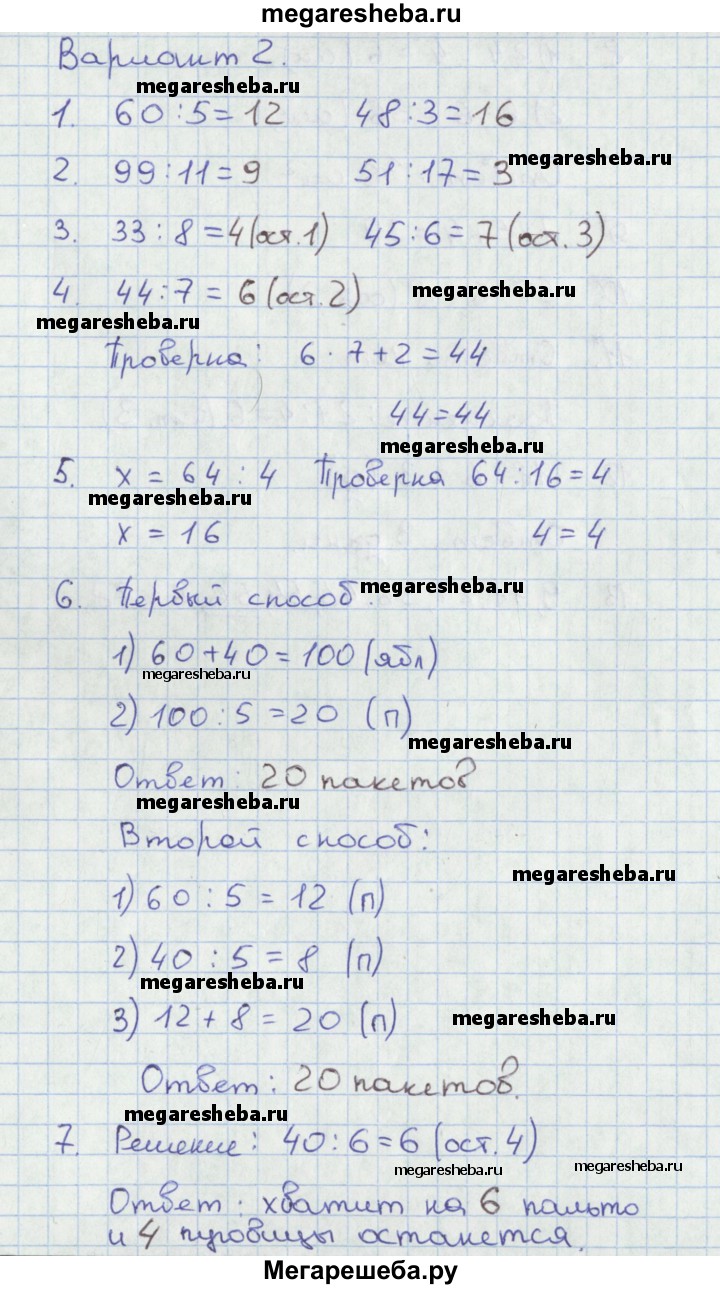 megaresheba.ru
Вариант 2.
megaresheba.ru
1. 60 : 5 = 12 48 : 3 = 16
megaresheba.ru
2. 99 : 11 = 9 51 : 17 = 3
3. 33 : 8 = 4 (ост. 1) 45 : 6 = 7 (ост. 3)
4. 44 : 7 = 6 (ост. 2) megaresheba.ru
megaresheba.ru
Проверка: 6 · 7 + 2 = 44
44 = 44
megaresheba.ru
5. х = 64 : 4 Проверка 64 : 16 = 4
megaresheba.ru
х = 16 4 = 4
6. Первый способ: megaresheba.ru
1) 60 + 40 = 100 (ябл)
megaresheba.ru
2) 100 : 5 = 20 (п)
megaresheba.ru
Ответ: 20 пакетов
megaresheba.ru
Второй способ:
megaresheba.ru
1) 60 : 5 = 12 (п)
2) 40 : 5 = 8 (п)
megaresheba.ru
3) 12 + 8 = 20 (п) megaresheba.ru
Ответ: 20 пакетов.
megaresheba.ru
7. Решение: 40 : 6 = 6 (ост. 4)
megaresheba.ru megaresheba.ru
Ответ: хватит на 6 пальто
и 4 пуговицы останется.
Мегарешеба.ру